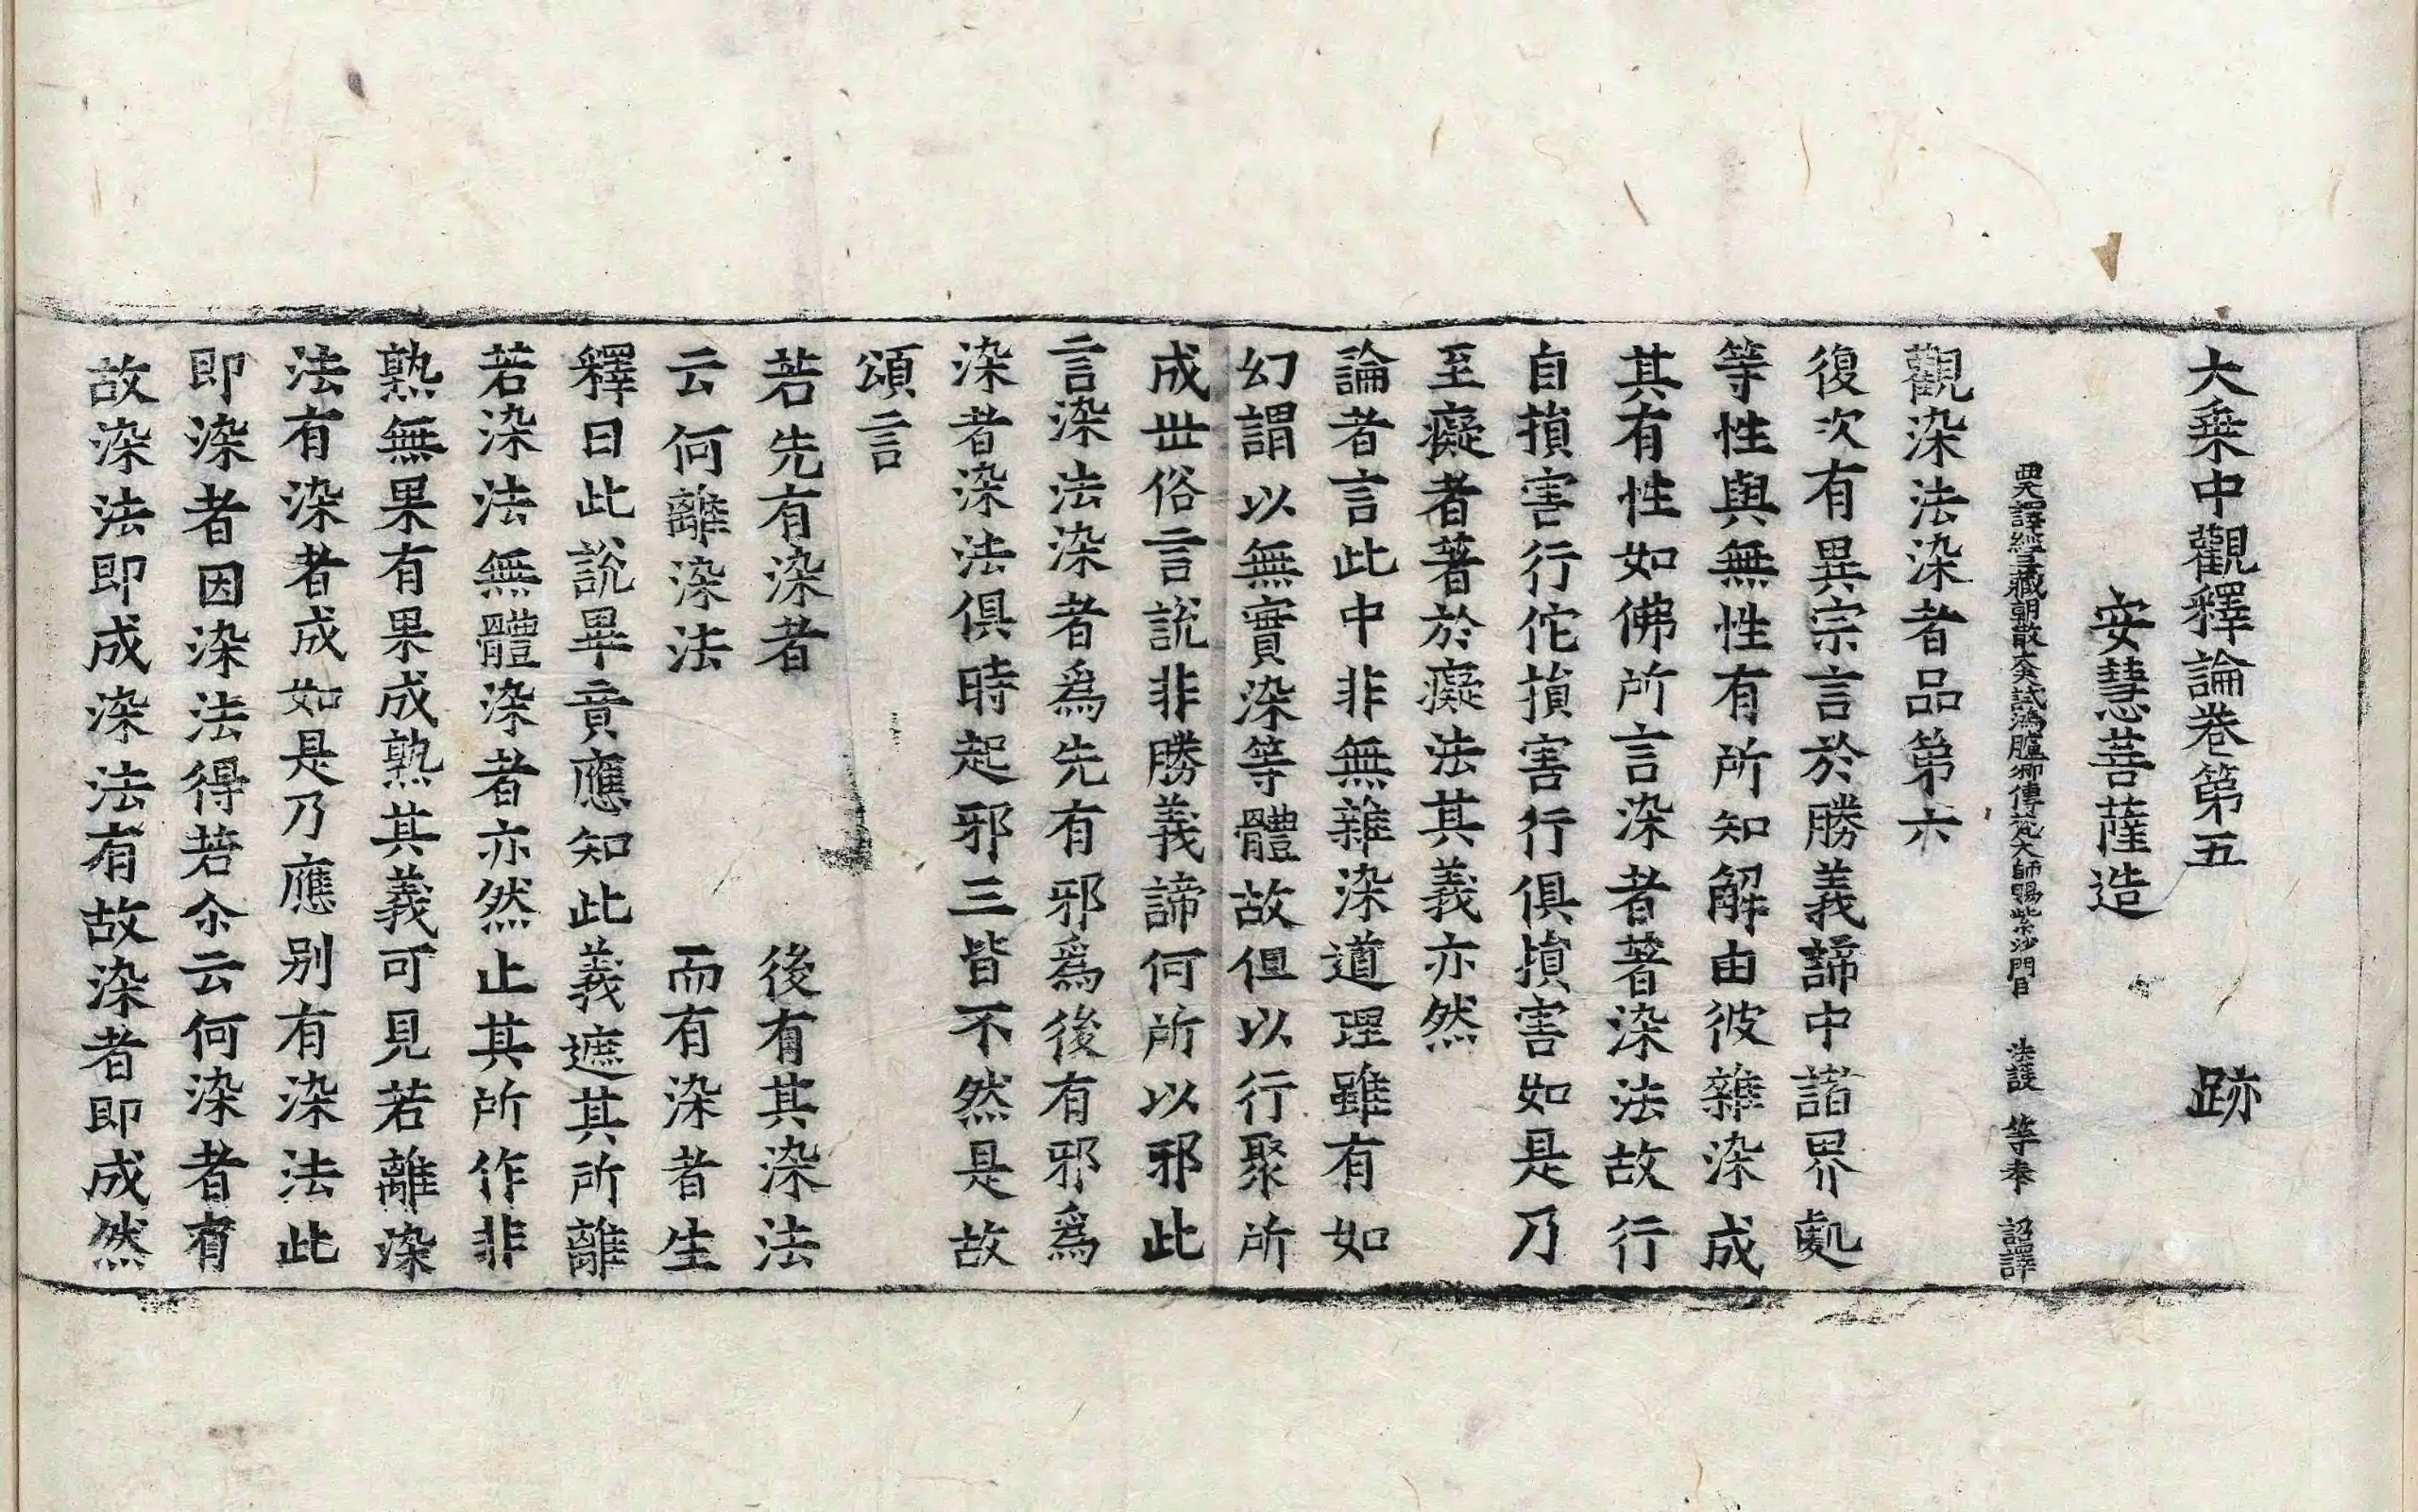 大乗中觀釋論卷第五　跡
安慧菩薩造
西天譯經三藏朝散大夫試鴻臚卿傳梵大師賜紫沙門臣　法護　等奉　詔譯
觀染法染者品第六
復次有異宗言於勝義諦中諸界處
等性與無性有所知解由彼雜染成
其有性如佛所言染者著染法故行
自損害行佗損害行俱損害如是乃
至癡者著於癡法其義亦然
論者言此中非無雜染道理雖有如
幻謂以無實染等體故但以行聚所
成世俗言說非勝義諦何所以邪此
言染法染者爲先有邪爲後有邪爲
染者染法俱時起邪三皆不然是故
頌言
若先有染者　後有其染法
云何離染法　而有染者生
釋曰此說畢竟應知此義遮其所離
若染法無體染者亦然止其所作非
熟無果有果成熟其義可見若離染
法有染者成如是乃應別有染法此
即染者因染法得若尒云何染者有
故染法即成染法有故染者即成然